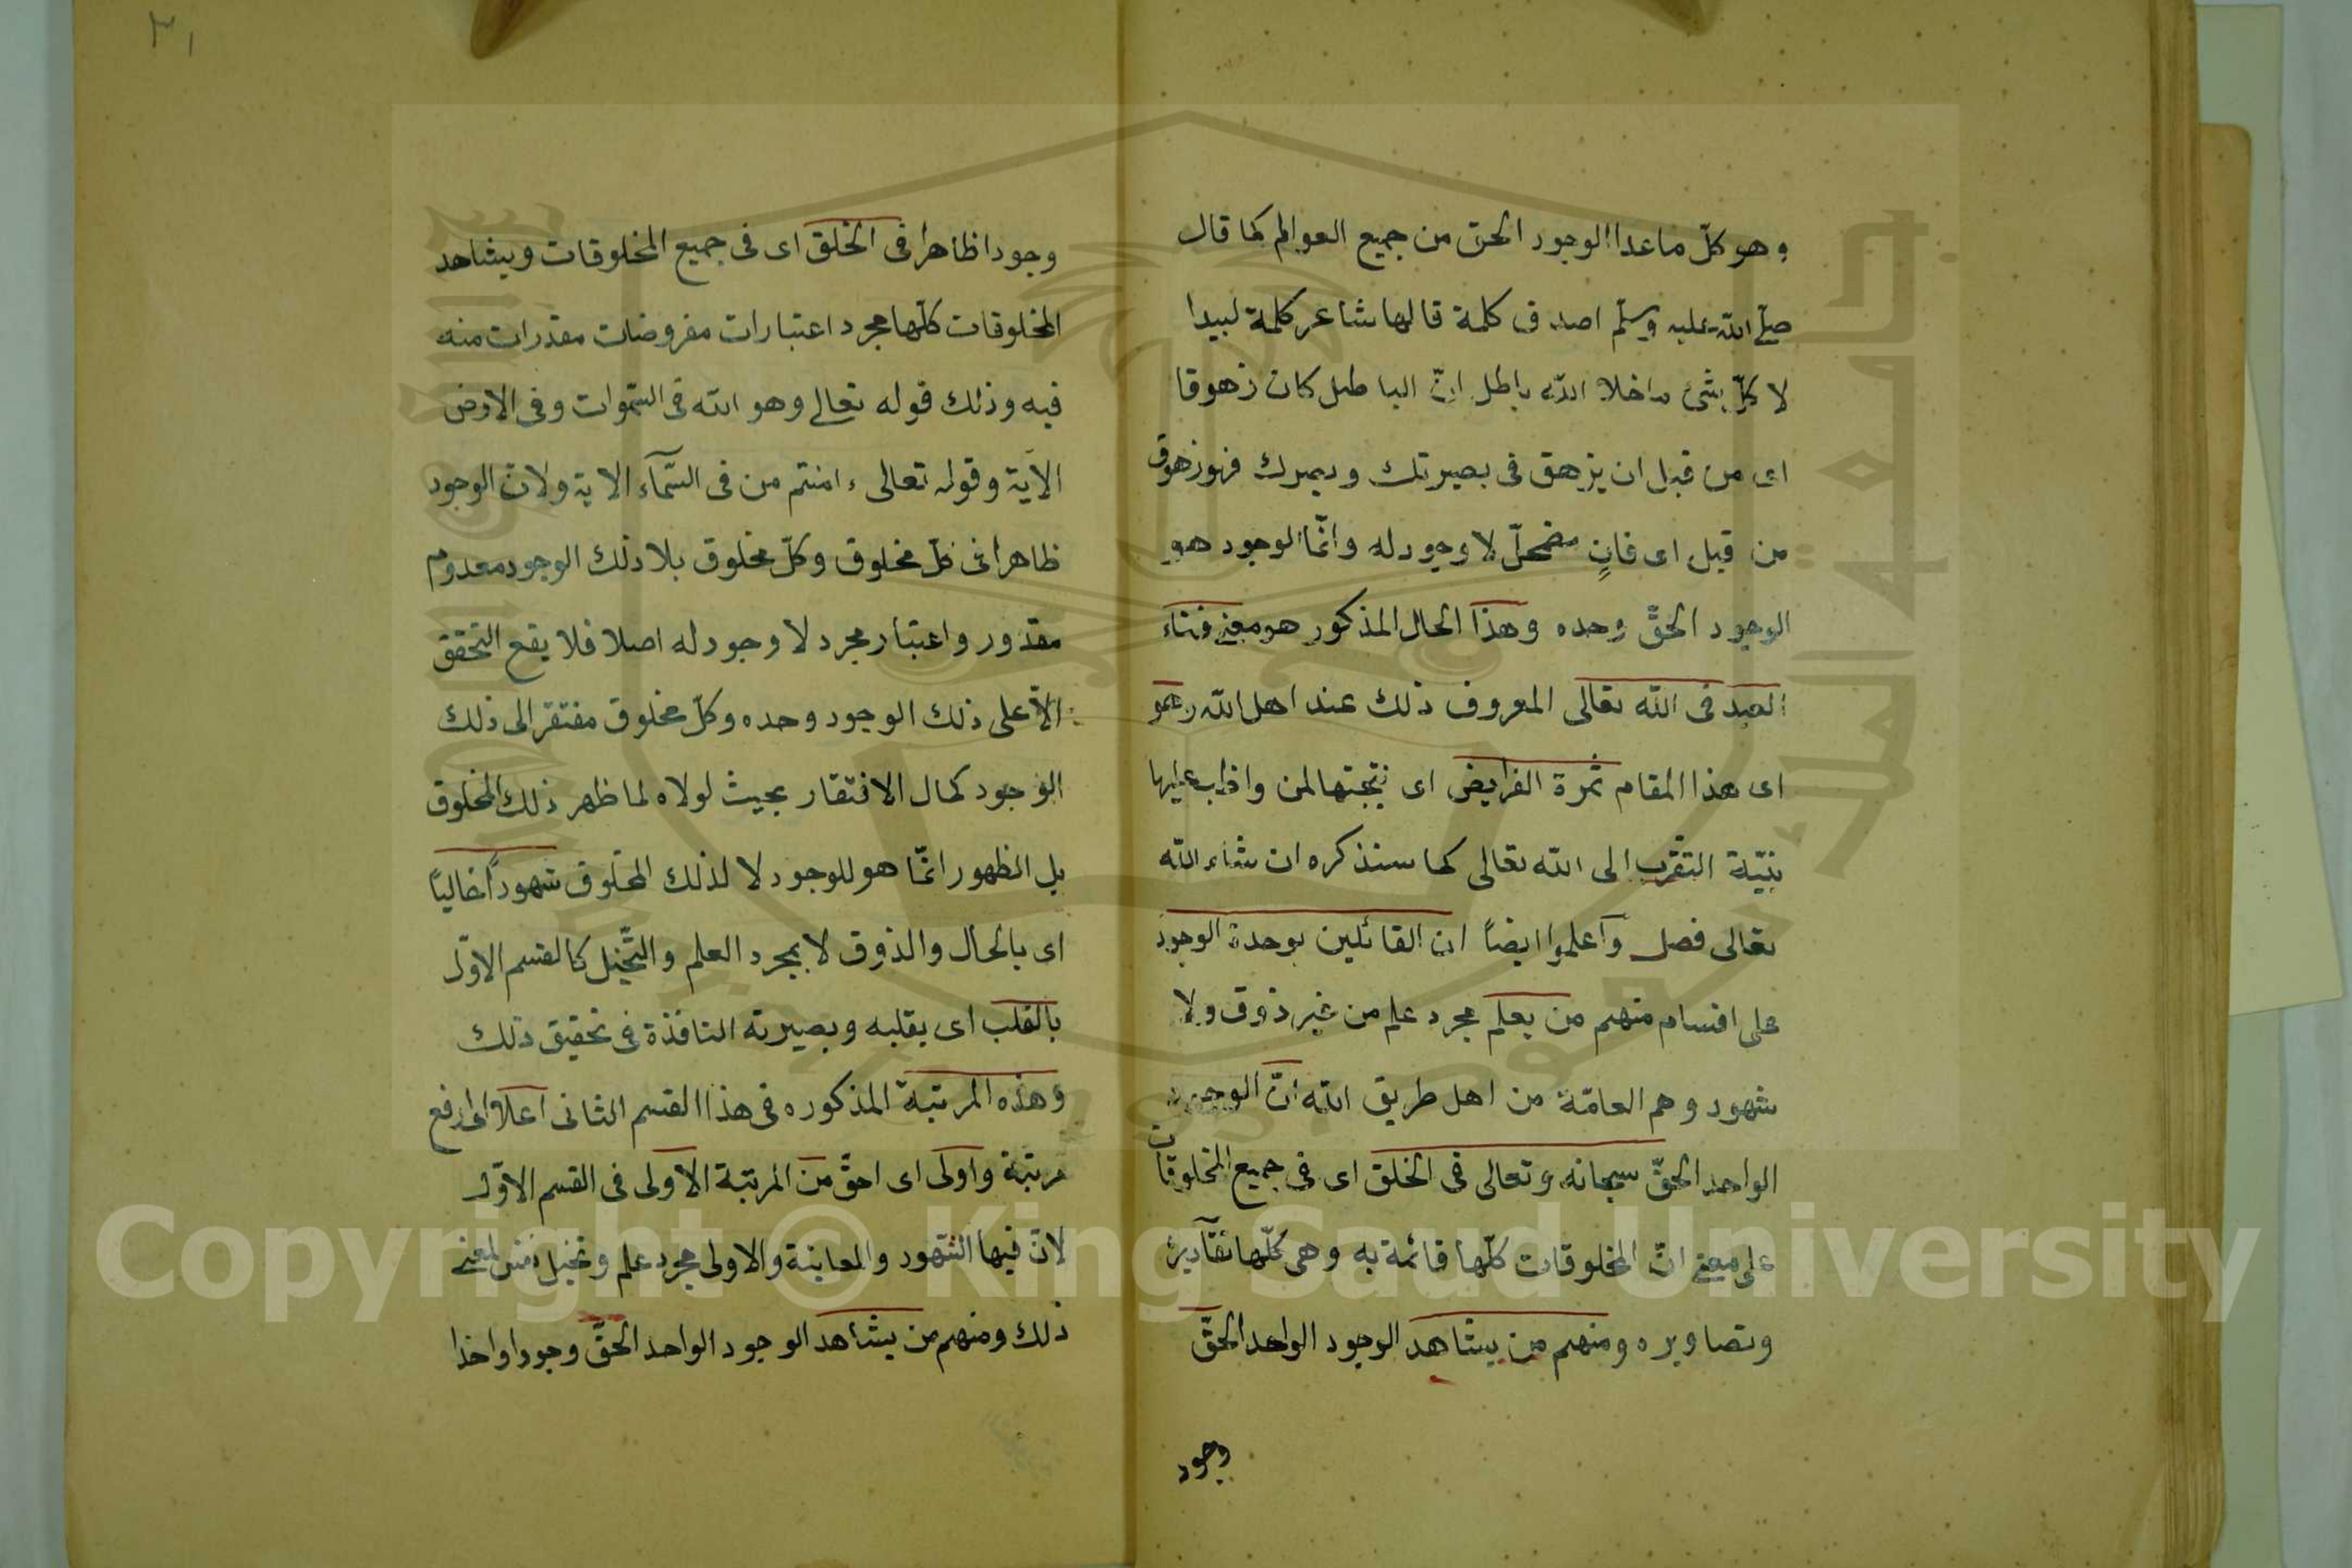 وهو كلّ ما عدا الوجود الحق من جميع العوالم كما قال
صلّى الله عليه وسلّم اصدق كلمة قالها شاعر كلمة لبيدا
لا كلّ شئ ما خلا الله باطل انّ الباطل كان زهوقا
اى من قبل ان يزهق فى بصيرتك وبصرك فهو زهوق
من قبل اى فانٍ مضمحلّ لا وجود له وانّما الوجود هو
الوجود الحقّ وحده وهذا الحال المذكور هو معنى فناء
العبد فى الله تعالى المعروف ذلك عند اهل الله وهو
اى هذا المقام ثمرة الفرايض اى نتيجتها لمن واظب عليها
بنيّة التقرب الى الله تعالى كما سنذكره ان شاء الله
تعالى فصل وآعلموا ايضاً ان القائلين بوحدة الوجود
على اقسام منهم من يعلم مجرد علم من غير ذوق ولا
شهود وهم العامّة من اهل طريق الله انّ الوجود
الواحد الحقّ سبحانه وتعالى فى الخلق اى فى جميع المخلوقات
على معنى انّ المخلوقات كلّها قائمة به وهى كلّها تقآديره
وتصاويره ومنهم من يشاهد الوجود الواحد الحقّ
وجود
٣١
وجودا ظاهرا فى الخلق اى فى جميع المخلوقات ويشاهد
المخلوقات كلّها مجرد اعتبارات مفروضات مقدرات منه
فيه وذلك قوله تعالى وهو الله فى السّموات وفى الارض
الآية وقوله تعالى ءامنتم من فى السّمآء الاية ولانّ الوجود
ظاهرا فى كلّ مخلوق وكلّ مخلوق بلا ذلك الوجود معدوم
مقدور واعتبار مجرد لا وجود له اصلا فلا يقع التحقق
الّا على ذلك الوجود وحده وكلّ مخلوق مفتقر الى ذلك
الوجود كمال الافتقار بحيث لولاه لما ظهر ذلك المخلوق
بل الظهور انّما هو للوجود لا لذلك المخلوق شهوداً خالياً
اى بالحال والذوق لا بمجرد العلم والتّخيل كالقسم الاوّل
بالقلب اى بقلبه وبصيرته النافذة فى تحقيق ذلك
وهذه المرتبة المذكوره فى هذا القسم الثانى اعلا اى ارفع
مرتبة واولى اى احقّ من المرتبة الاولى فى القسم الاوّل
لانّ فيها الشّهود والمعاينة والاولى مجرد علم وتخيل نفس لمعنى
ذلك ومنهم من يشاهد الوجود الواحد الحقّ وجودا واخذا
Copyright © King Saud University